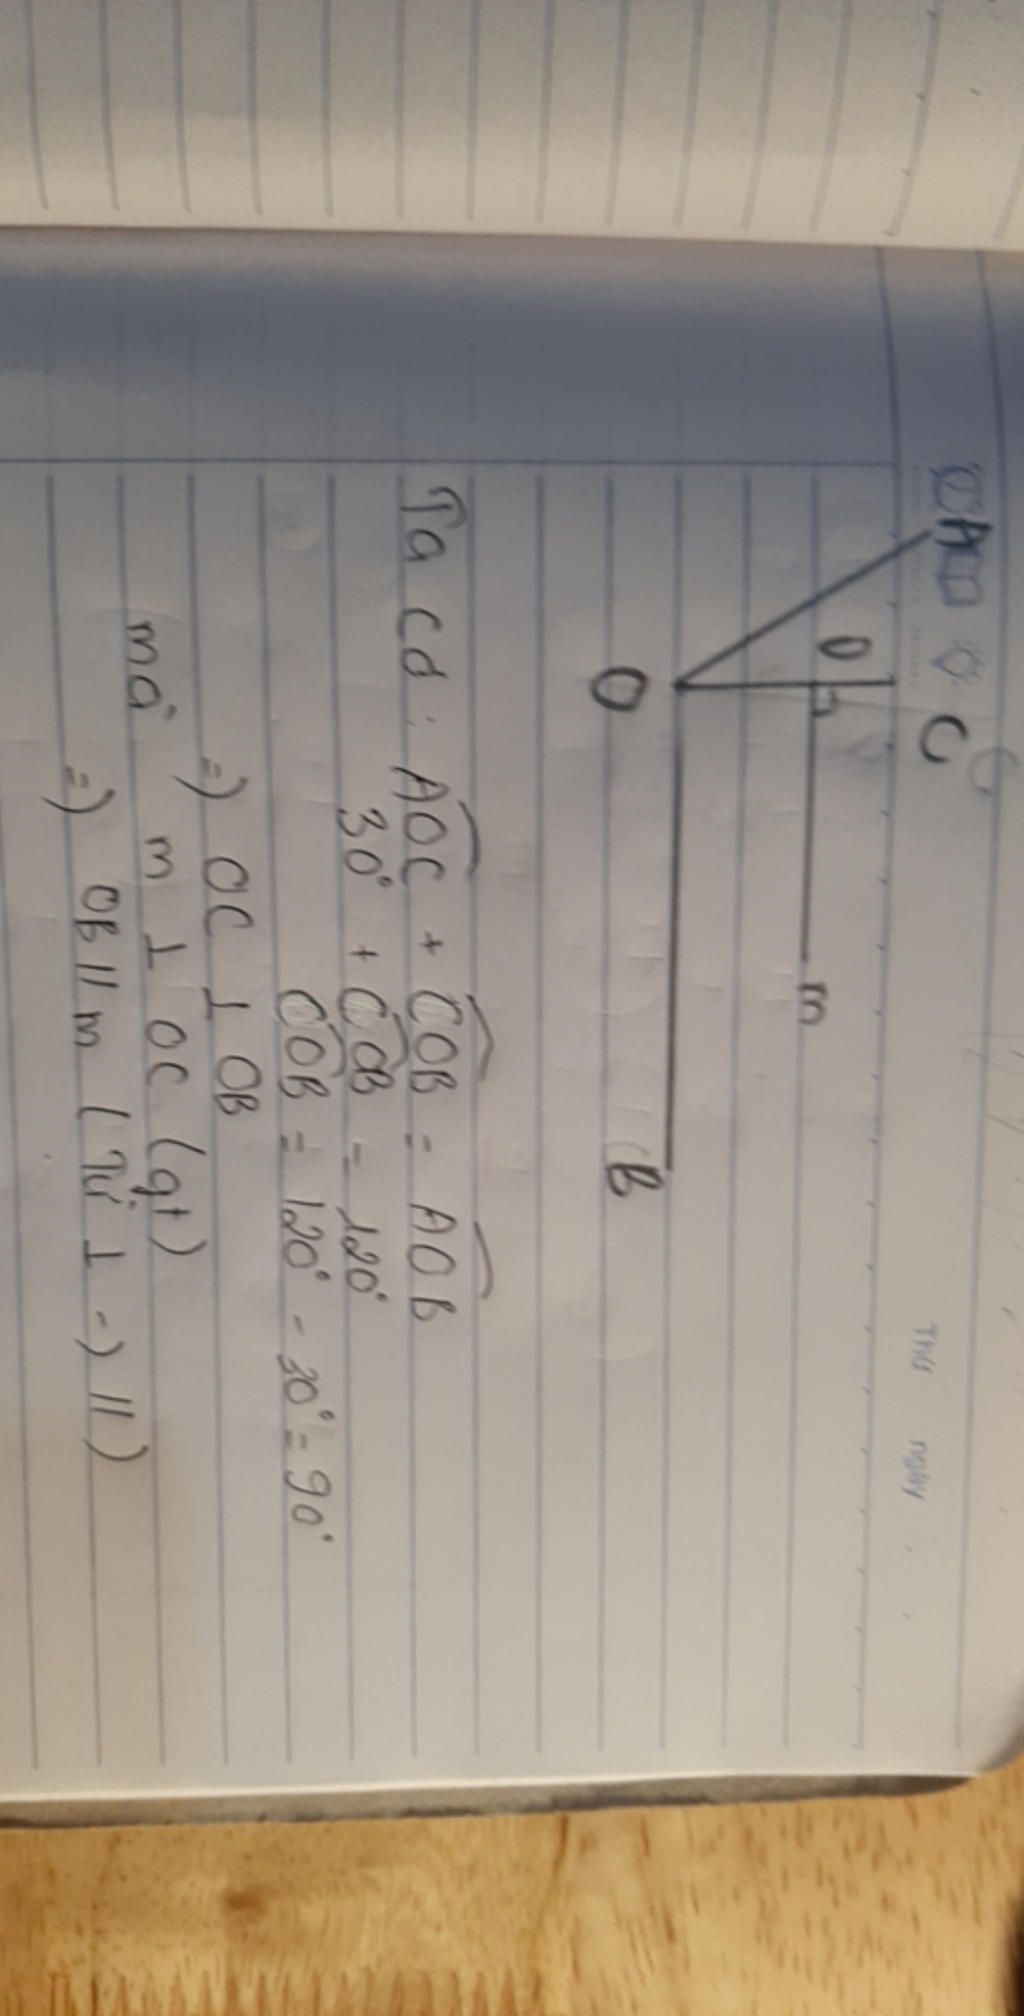 Thứ ngày
A C
D m
O B
Ta có: AOC + COB = AOB
30° + COB = 120°
COB = 120° - 30° = 90°
=) OC ⊥ OB
mà m ⊥ OC (gt)
=) OB // m (Từ ⊥ -) //)